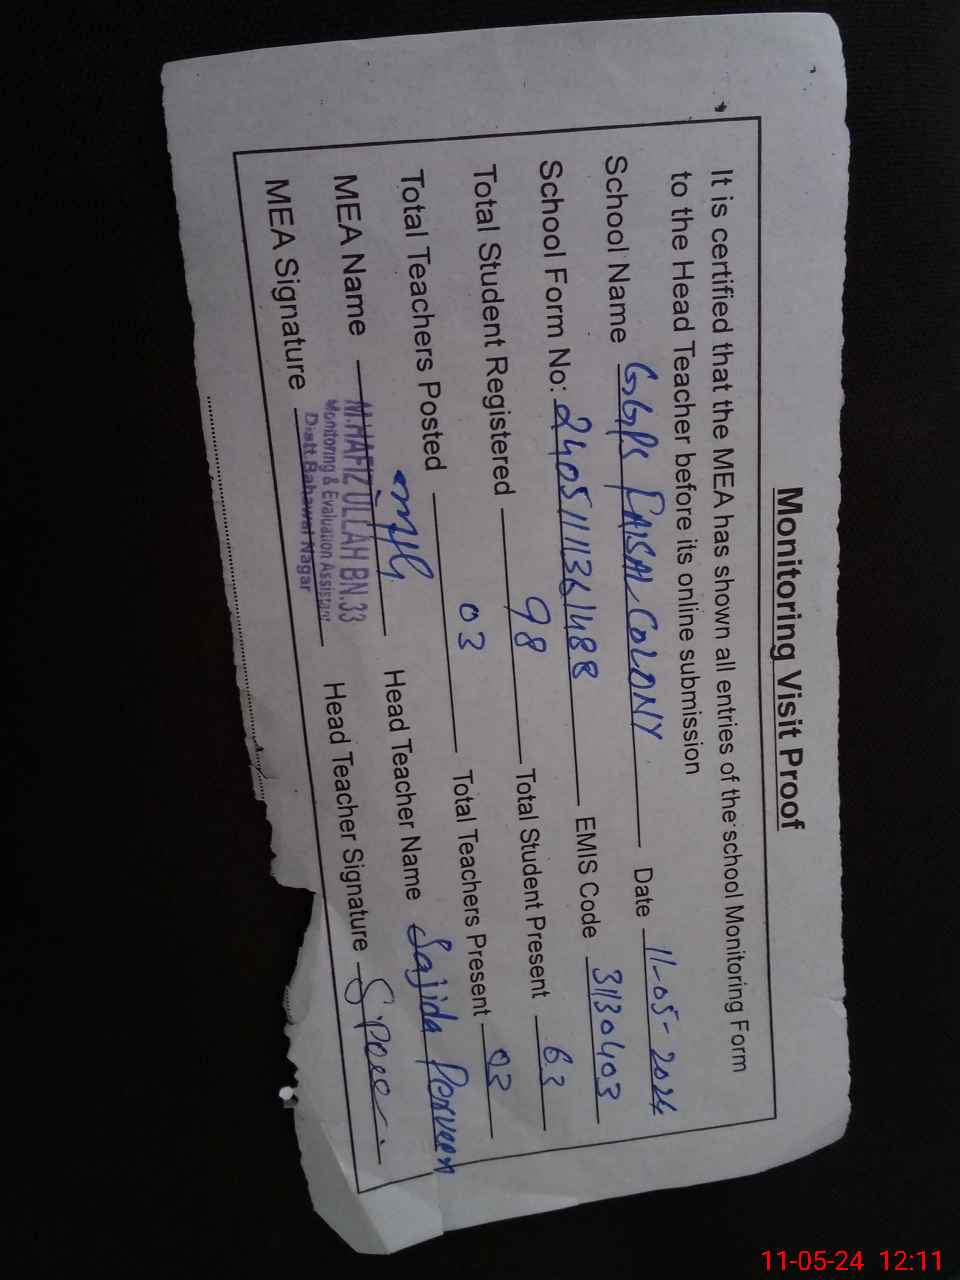 Monitoring Visit Proof
It is certified that the MEA has shown all entries of the school Monitoring Form
to the Head Teacher before its online submission
School Name GGPS FAISAL COLONY Date 11-05-2024
School Form No: 2405111361488 EMIS Code 31130403
Total Student Registered 98 Total Student Present 63
Total Teachers Posted 03 Total Teachers Present 03
MEA Name Head Teacher Name Sajida Perveen
M.HAFIZ ULLAH BN.33
Monitoring & Evaluation Assistant
Distt.Bahawal Nagar
MEA Signature Head Teacher Signature
11-05-24 12:11